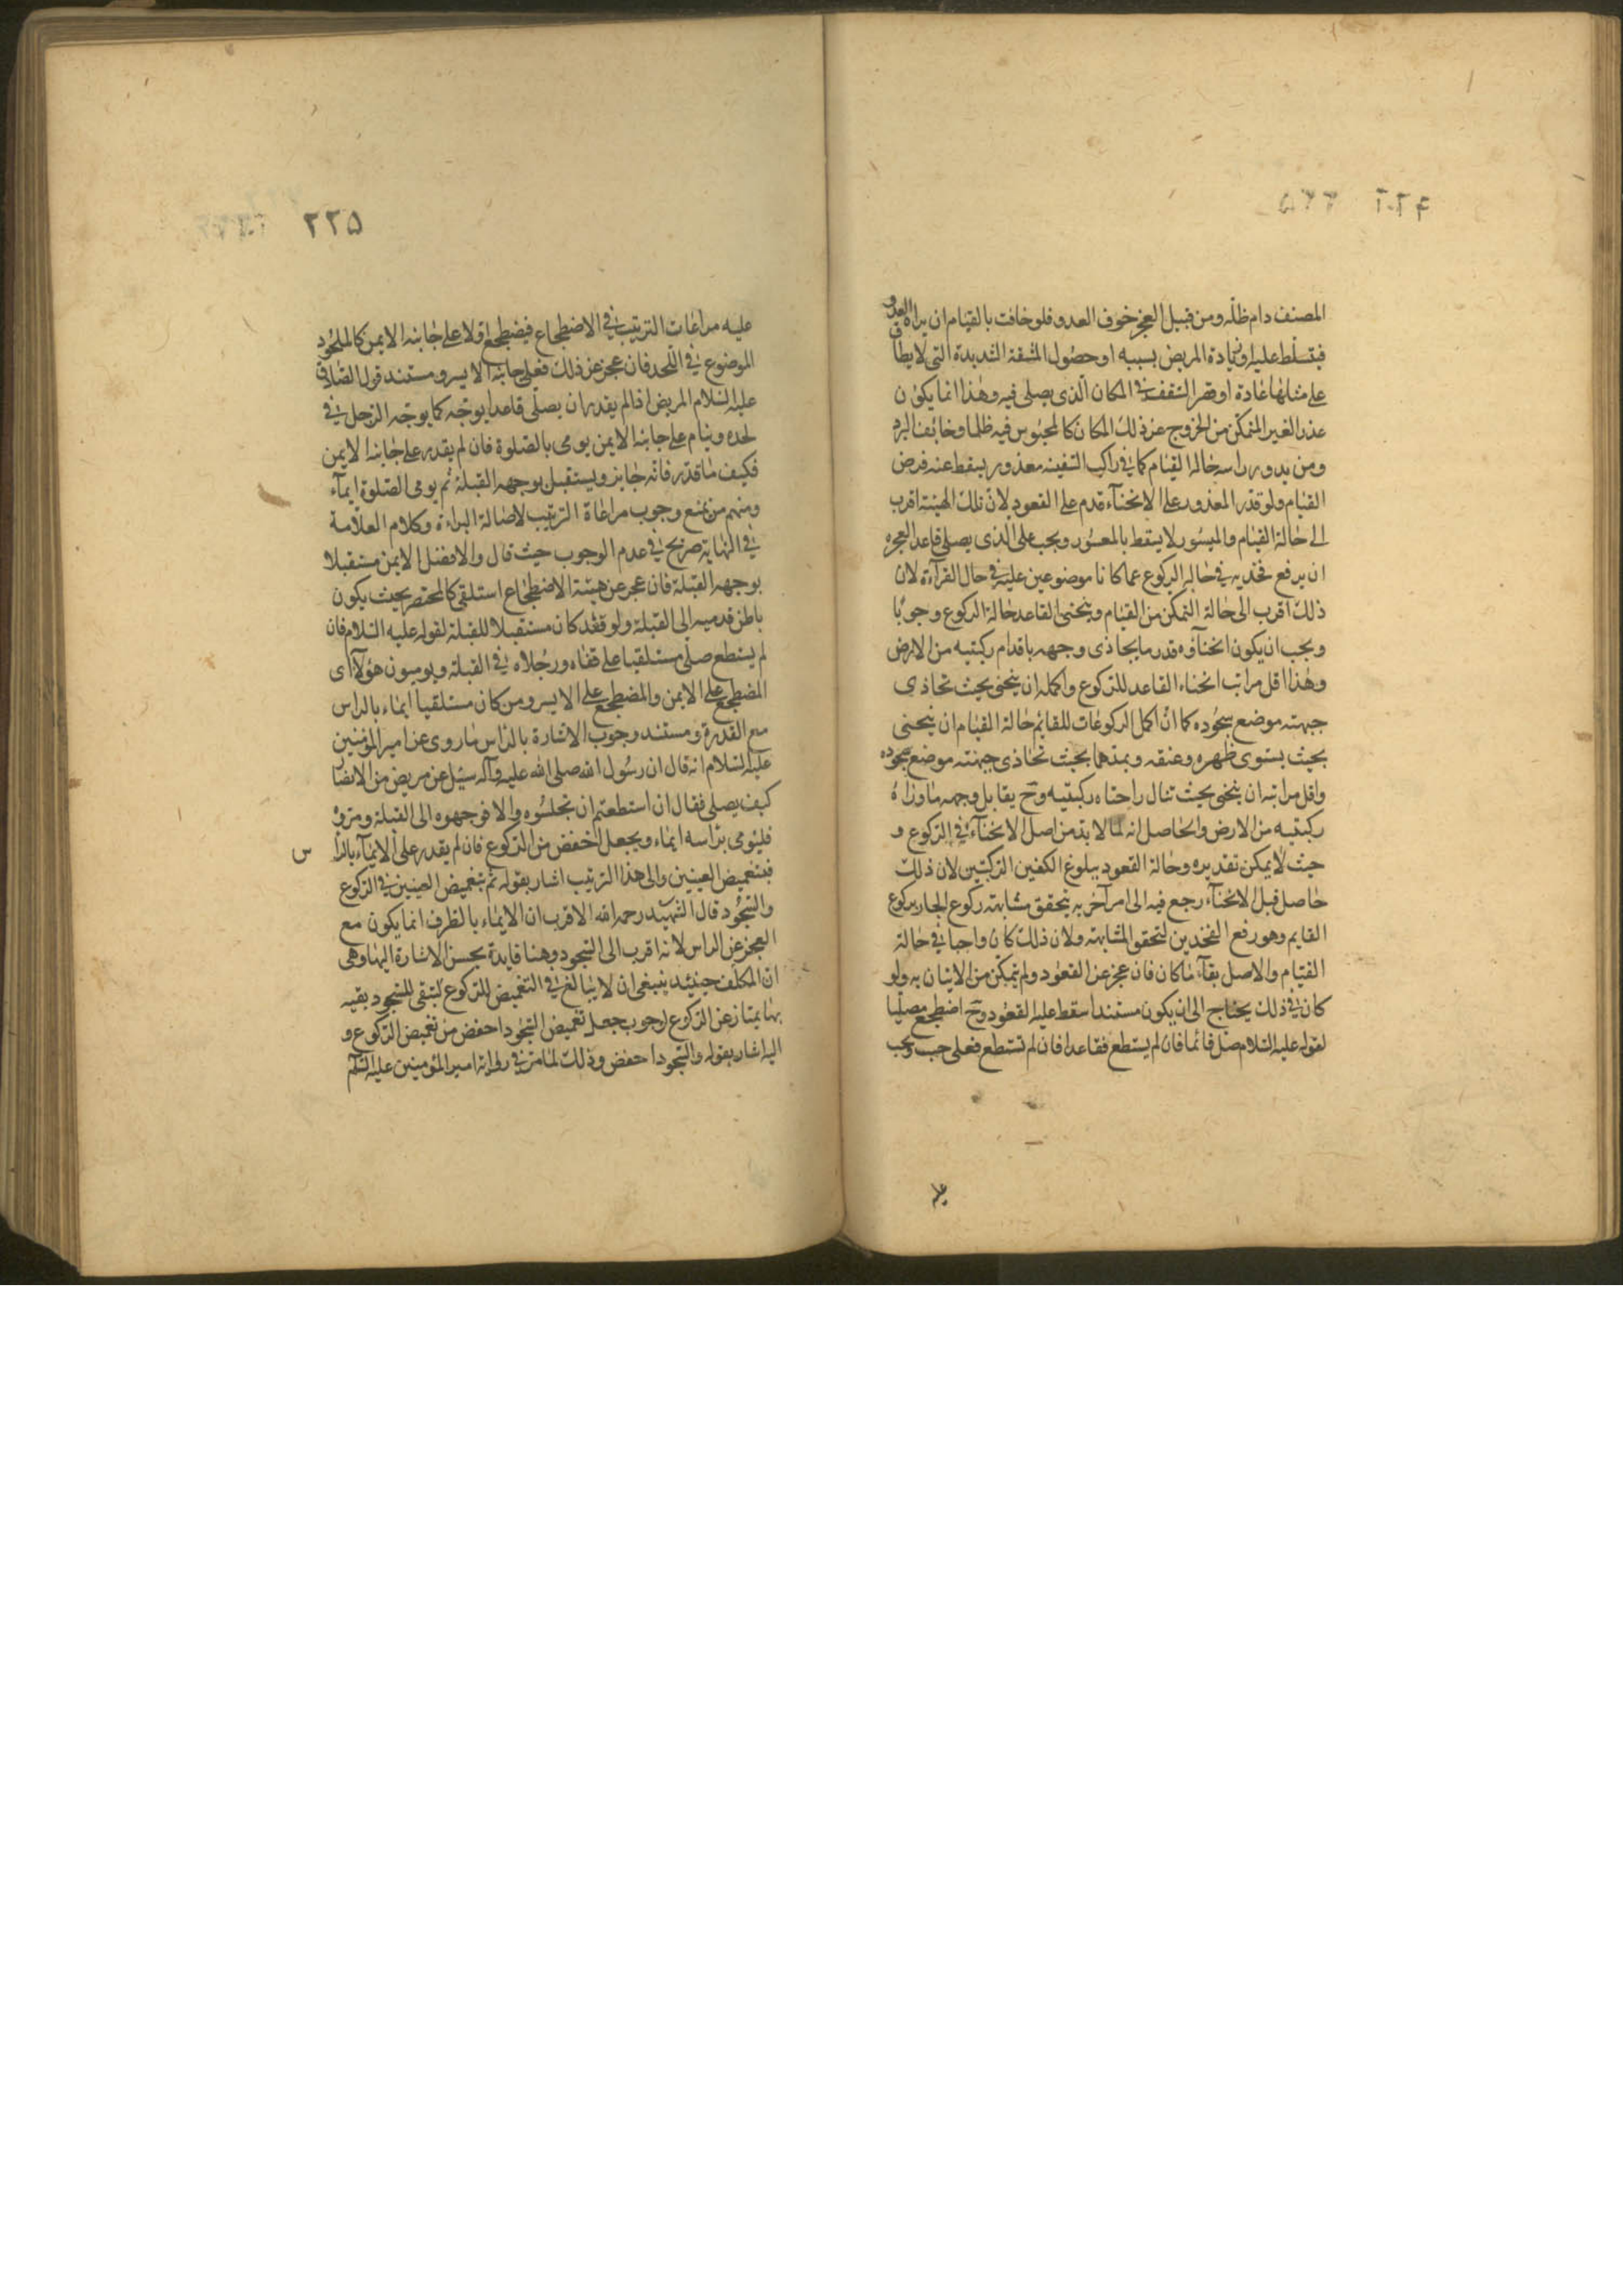 المصنف دام ظله ومن قبيل العجز خوف العدو فلو خافت بالقيام ان يراه العدو
فيتسلط عليه او زيادة المريض بسببه او حصول المشقة الشديدة التي لا يطاق
على مثلها عادة او قصر السقف في المكان الذى يصلى فيه وهذا انما يكون
عذر الغير المتمكن من الخروج عن ذلك المكان كالمحبوس فيه ظلما وخائف البرد
ومن يدور راسه حالة القيام كما في راكب السفينه معذور يسقط عنه فرض
القيام ولو قدر المعذور على الانحنآء قدم على القعود لان تلك الهيئة اقرب
الى حالة القيام والميسور لا يسقط بالمعسور ويجب على الذى يصلى قاعدا لعجزه
ان يرفع فخذيه في حالة الركوع عما كانا موضوعين عليه في حال القرآءة لان
ذلك اقرب الى حالة التمكن من القيام وينحنى القاعد حالة الركوع وجوبا
ويجب ان يكون انحنآؤه قدر ما يحاذى وجهه باقدام ركبتيه من الارض
وهذا اقل مراتب انحناء القاعد للركوع واكمله ان ينحنى بحيث تحاذى
جبهته موضع سجوده كما ان اكمل الركوعات للقائم حالة القيام ان ينحنى
بحيث يستوى ظهره وعنقه ويمدهما بحيث تحاذى جبهته موضع سجوده
واقل مراتبه ان ينحنى بحيث تنال راحتاه ركبتيه وح يقابل وجهه ماوراء
ركبتيه من الارض والحاصل انه لما لا بد من اصل الانحنآء في الركوع و
حيث لا يمكن تقديره وحالة القعود ببلوغ الكفين الركبتين لان ذلك
حاصل قبل الانحنآء رجع فيه الى امر آخر به يتحقق مشابهته ركوع الجار بركوع
القايم وهو رفع الفخذين لتحقق المشابهته ولان ذلك كان واجبا في حالة
القيام والاصل بقآء ما كان فان عجز عن القعود ولم يتمكن من الاتيان به ولو
كان في ذلك يحتاج الى ان يكون مستندا سقط عليه القعود وح اضطجع مصليا
لقوله عليه السلام صل قائما فان لم يستطع فقاعدا فان لم تستطع فعلى جنب ويجب
٢٢٥
عليه مراعات الترتيب في الاضطجاع فيضطجع اولا على جانبه الايمن كالملحود
الموضوع في اللحد فان عجز عن ذلك فعلى جانبه الايسر ومستند قول الصادق
عليه السلام المريض اذا لم يقدر ان يصلى قاعدا يوجّه كما يوجّه الرجل في
لحده وينام على جانبه الايمن يومى بالصلوة فان لم يقدر على جانبه الايمن
فكيف ما قدر فانه جايز ويستقبل بوجهه القبلة ثم يومى الصلوة ايمآء
ومنهم من يمنع وجوب مراعاة الترتيب لاصالة البراءة وكلام العلامة
في النهاية صريح في عدم الوجوب حيث قال والافضل الايمن مستقبلا
بوجهه القبلة فان عجز عن هيئة الاضطجاع استلقى كالمحتضر بحيث يكون
باطن قدميه الى القبلة ولو قعد كان مستقبلا للقبلة لقوله عليه السلام فان
لم يستطع صلى مستلقيا على قفاه ورجلاه في القبلة ويوميون هؤلآء اى
المضطجع على الايمن والمضطجع على الايسر ومن كان مستلقيا ايماء بالراس
مع القدرة ومستند وجوب الاشارة بالراس ما روى عن امير المؤمنين
عليه السلام انه قال ان رسول الله صلى الله عليه وآله سئل عن مريض من الانصار
كيف يصلى فقال ان استطعتم ان تجلسوه والا فوجهوه الى القبلة ومروه
فليومى براسه ايماء ويجعل اخفض من الركوع فان لم يقدر على الايمآء بالرا س
فبتغميض العينين والى هذا الترتيب اشار بقوله ثم بتغميض العينين في الركوع
والسجود قال الشهيد رحمه الله الاقرب ان الايماء بالطرف انما يكون مع
العجز عن الراس لانه اقرب الى السجود وهنا فايدة يحسن الاشارة اليها وهى
ان المكلف حينئذ ينبغى ان لا يبالغ في التغميض للركوع لتبقى للسجود بقيه
بها يمتاز عن الركوع لوجوب جعل تغميض السجود اخفض من تغميض الركوع و
اليه اشار بقوله والسجود اخفض وذلك لما مر في رواية امير المؤمنين عليه السلم